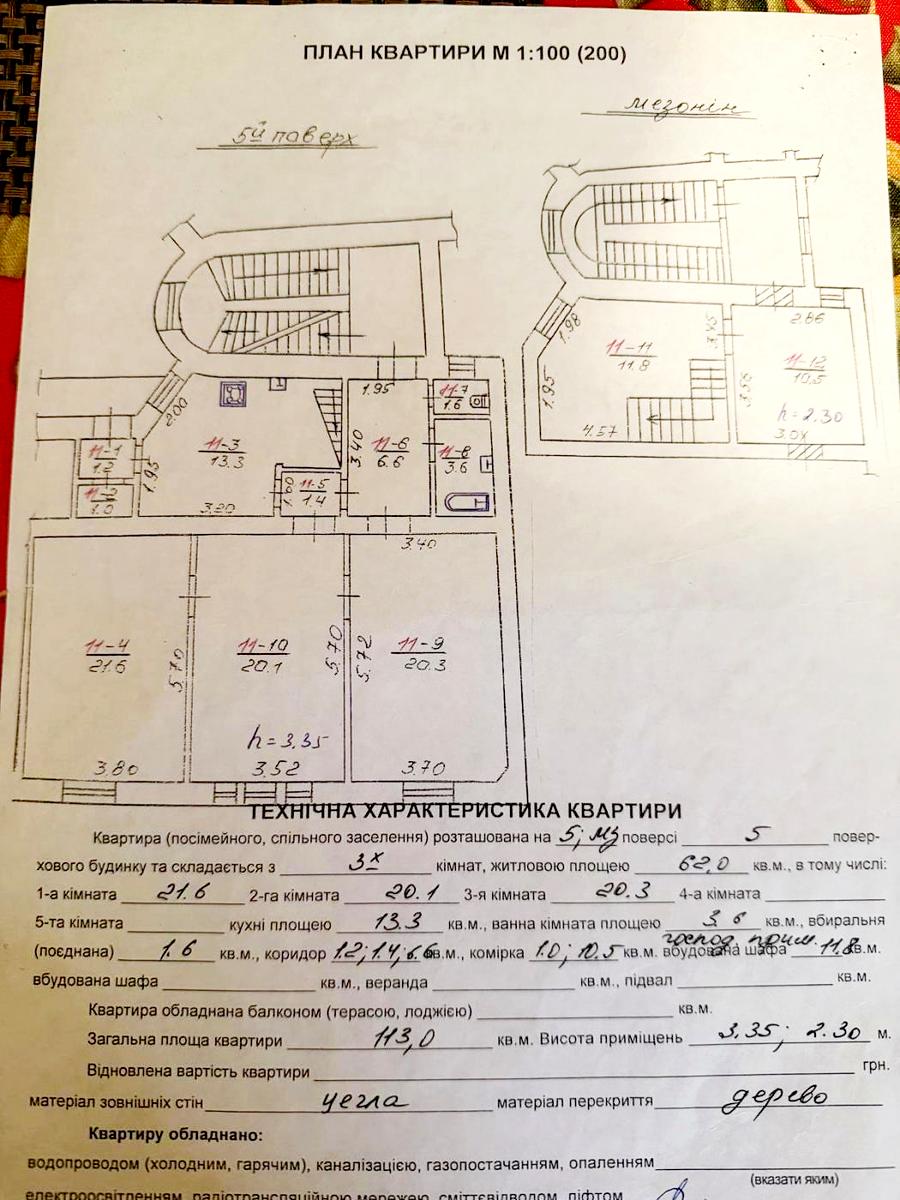 ПЛАН КВАРТИРИ М 1:100 (200)
мезонін
5й поверх
1.98
3.45
2.86
11-11
11.8
11-12
10.5
1.95
3.58
h=2.30
4.57
3.04
2.00
1.95
11-7
1.6
11-1
1.2
11-3
13.3
3.40
11-6
6.6
11-8
3.6
11-2
1.0
1.95
3.20
1.00
11-5
1.4
3.40
11-4
21.6
5.70
11-10
20.1
5.70
5.72
11-9
20.3
h=3.35
3.80
3.52
3.70
ТЕХНІЧНА ХАРАКТЕРИСТИКА КВАРТИРИ
Квартира (посімейного, спільного заселення) розташована на 5; мз поверсі 5 повер-
хового будинку та складається з 3х кімнат, житловою площею 62,0 кв.м., в тому числі:
1-а кімната 21.6 2-га кімната 20.1 3-я кімната 20.3 4-а кімната
5-та кімната кухні площею 13.3 кв.м., ванна кімната площею 3.6 кв.м., вбиральня
господ. прим.
(поєднана) 1.6 кв.м., коридор 1.2; 1.4; 6.6 кв.м., комірка 1.0; 10.5 кв.м. вбудована шафа 11.8 кв.м.
вбудована шафа кв.м., веранда кв.м., підвал кв.м.
Квартира обладнана балконом (терасою, лоджією) кв.м.
Загальна площа квартири 113,0 кв.м. Висота приміщень 3.35; 2.30 м.
Відновлена вартість квартири грн.
матеріал зовнішніх стін цегла матеріал перекриття дерево
Квартиру обладнано:
водопроводом (холодним, гарячим), каналізацією, газопостачанням, опаленням
(вказати яким)
електроосвітленням, радіотрансляційною мережею, сміттєвідводом, ліфтом